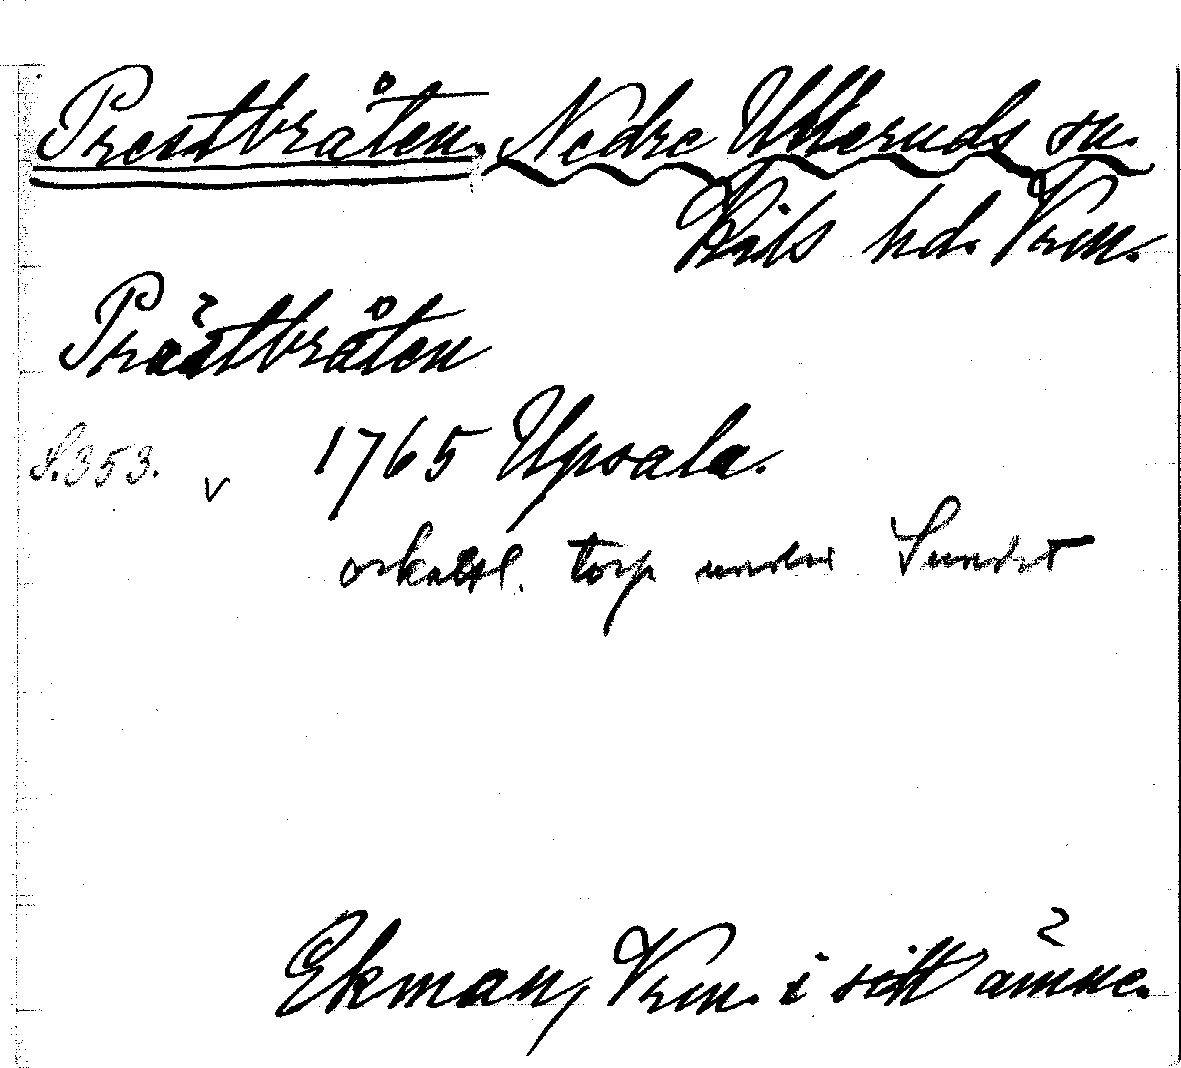 Prestbråten. Nedre Ulleruds sn.
Kils hd. Vrm.
Prästbråten
S. 353. v 1765 Upsala.
torp under Sundet
Ekman, Vrm. i sitt ämne.